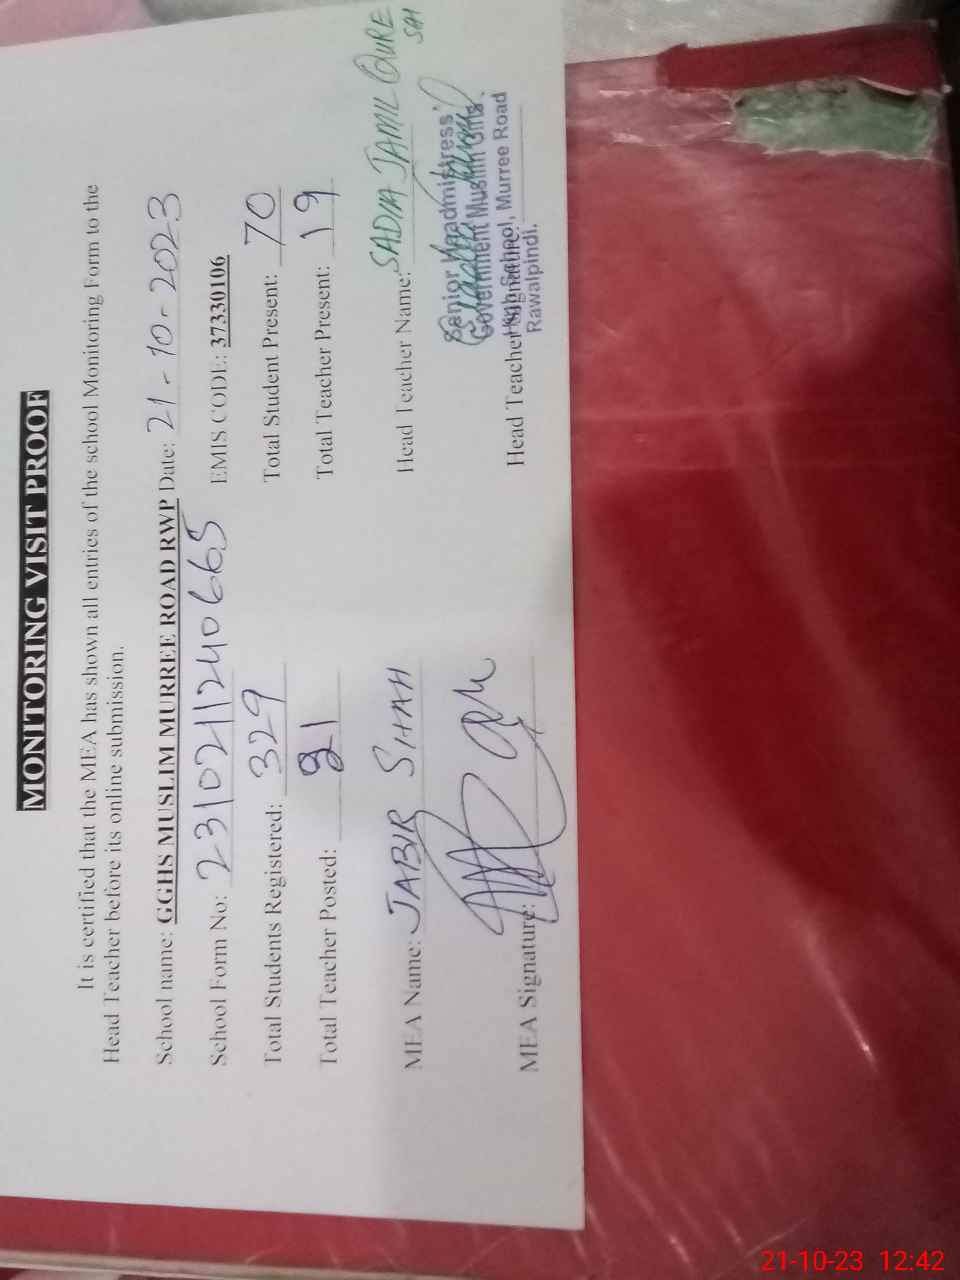 MONITORING VISIT PROOF
It is certified that the MEA has shown all entries of the school Monitoring Form to the
Head Teacher before its online submission.
School name: GGHS MUSLIM MURREE ROAD RWP Date: 21-10-2023
School Form No: 231021124066 5 EMIS CODE: 37330106
Total Students Registered: 329 Total Student Present: 70
Total Teacher Posted: 21 Total Teacher Present: 19
MEA Name: JABIR SHAH Head Teacher Name: SADIA JAMIL QURE
SHI
Senior Headmistress
Government Muslim Girls
High School, Murree Road
Rawalpindi.
MEA Signature: Head Teacher Signature:
21-10-23 12:42